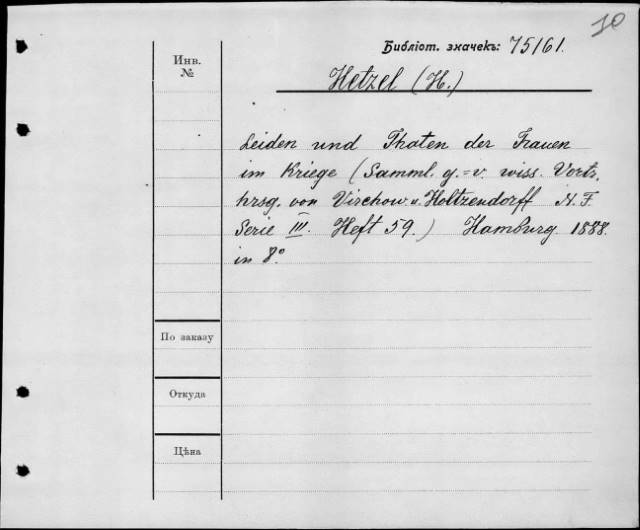 10
Библіот. значекъ: 75161.
Инв.
№
Hetzel (H.)
Leiden und Thaten der Frauen
im Kriege (Samml. g.=v. wiss. Vortr.
hrsg. von Virchow u. Holtzendorff N. F.
Serie III. Heft 59.) Hamburg. 1888.
in 8°.
По заказу
Откуда
Цѣна